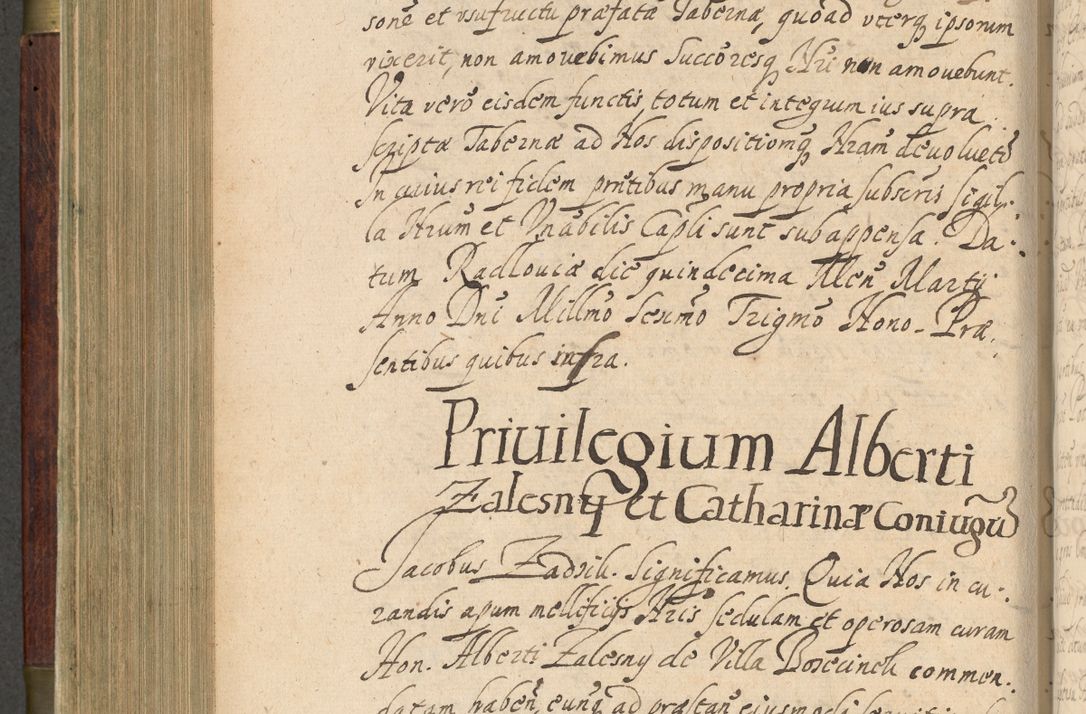 sone et vsufructu præfatæ Tabernæ, quoad vterq ipsorum
vixerit, non amouebimus Succoresq Nri non amouebunt.
Vita vero eisdem functis, totum et integrum ius supra
scriptæ Tabernæ ad Nos dispositiomq Nram deuoluetr
In cuius rei fidem pntibus manu propria subscris sigil-
la Nrum et Vnabilis Capli sunt subappensa. Da-
tum Radlouiæ die quindecima Men Martij
Anno Dni Millmo Sexmo Trigmo Nono. Præ
sentibus quibus infra.
Priuilegium Alberti
Zalesny et Catharinæ Coniugu
Jacobus Zadzik. Significamus. Quia Nos in cu-
randis apum mellificijs Nris sedulam et operosam curam
Hon. Alberti Zalesny de Villa commen-
datam haben, eunq ad præstan eiusmodi